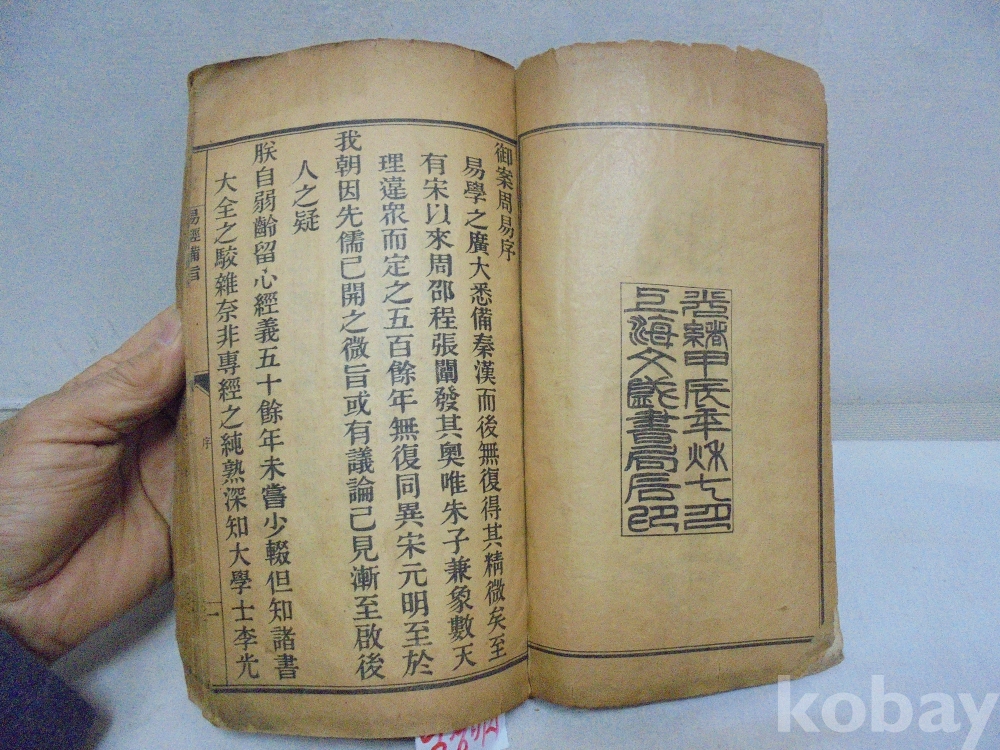 光緒甲辰年秋七月
上海文盛書局石印
御案周易序
易學之廣大悉備秦漢而後無復得其精微矣至
有宋以來周邵程張闡發其奧唯朱子兼象數天
理違衆而定之五百餘年無復同異宋元明至於
我朝因先儒已開之微旨或有議論已見漸至啟後
人之疑
朕自弱齡留心經義五十餘年未嘗少輟但知諸書
大全之駁雜奈非專經之純熟深知大學士李光
易經備旨
序
一
kobay